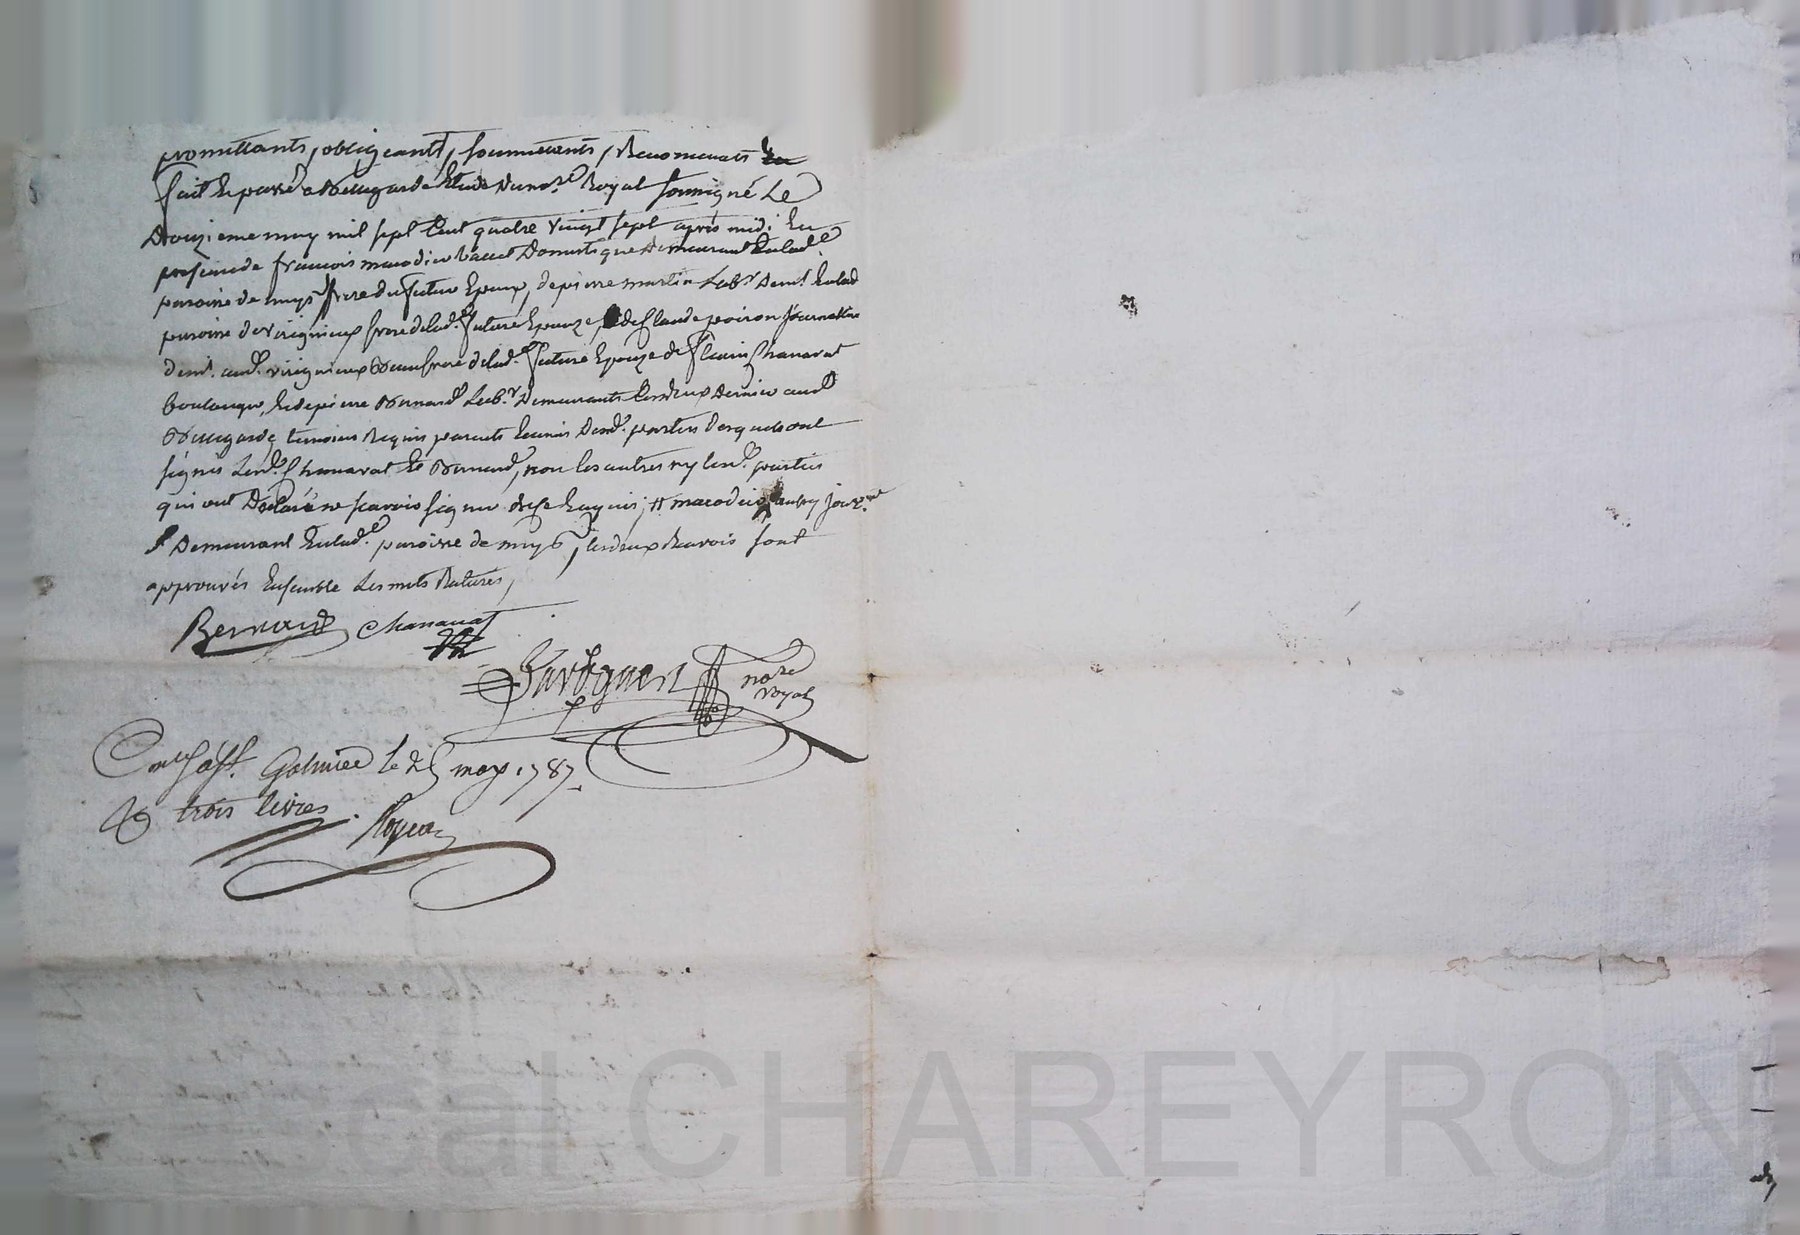 promettants, obligeants, soumettants, Renonceants
fait Et passé a Bellegarde Etude du no.re Royal soussigné Le
Douzieme may mil sept Cent quatre vingt sept apres midi En
presence de françois macodier Vallet Domestique Demeurant En lad.e
paroisse de frere du futur Epoux, de pierre martin Lab.r Dem.t En lad
paroisse de virignieux frere de lad.e future Epouze, de Claude poiron Journallier
dem.t aud. virignieux Beaufrere de lad.e future Epouze de Chanavat
boulanger, Et de pierre Bernard Lab.r Demeurants Les deux Dernier aud
Bellegarde temoins Requis parents Et amis Desd. parties Lesquels ont
signes Lesd. Chanavat Et Bernard, non les autres ny lesd. parties
qui ont Déclaré ne scavoir signer de ce Enquis, # macodier Jour.er
Demeurant En lad.e paroisse de les deux Renvois sont
approuvés Ensemble Les mots Raturés,
Bernard Chanavat
no.re
royal
Con.lé a S.t Galmier le 25 may 1787
R trois livres.
cal CHAREYRON